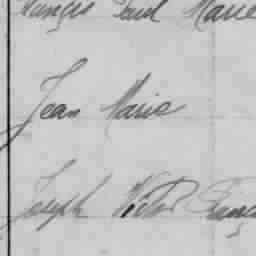 Paul Marie
Jean Marie
Joseph Victor Franç